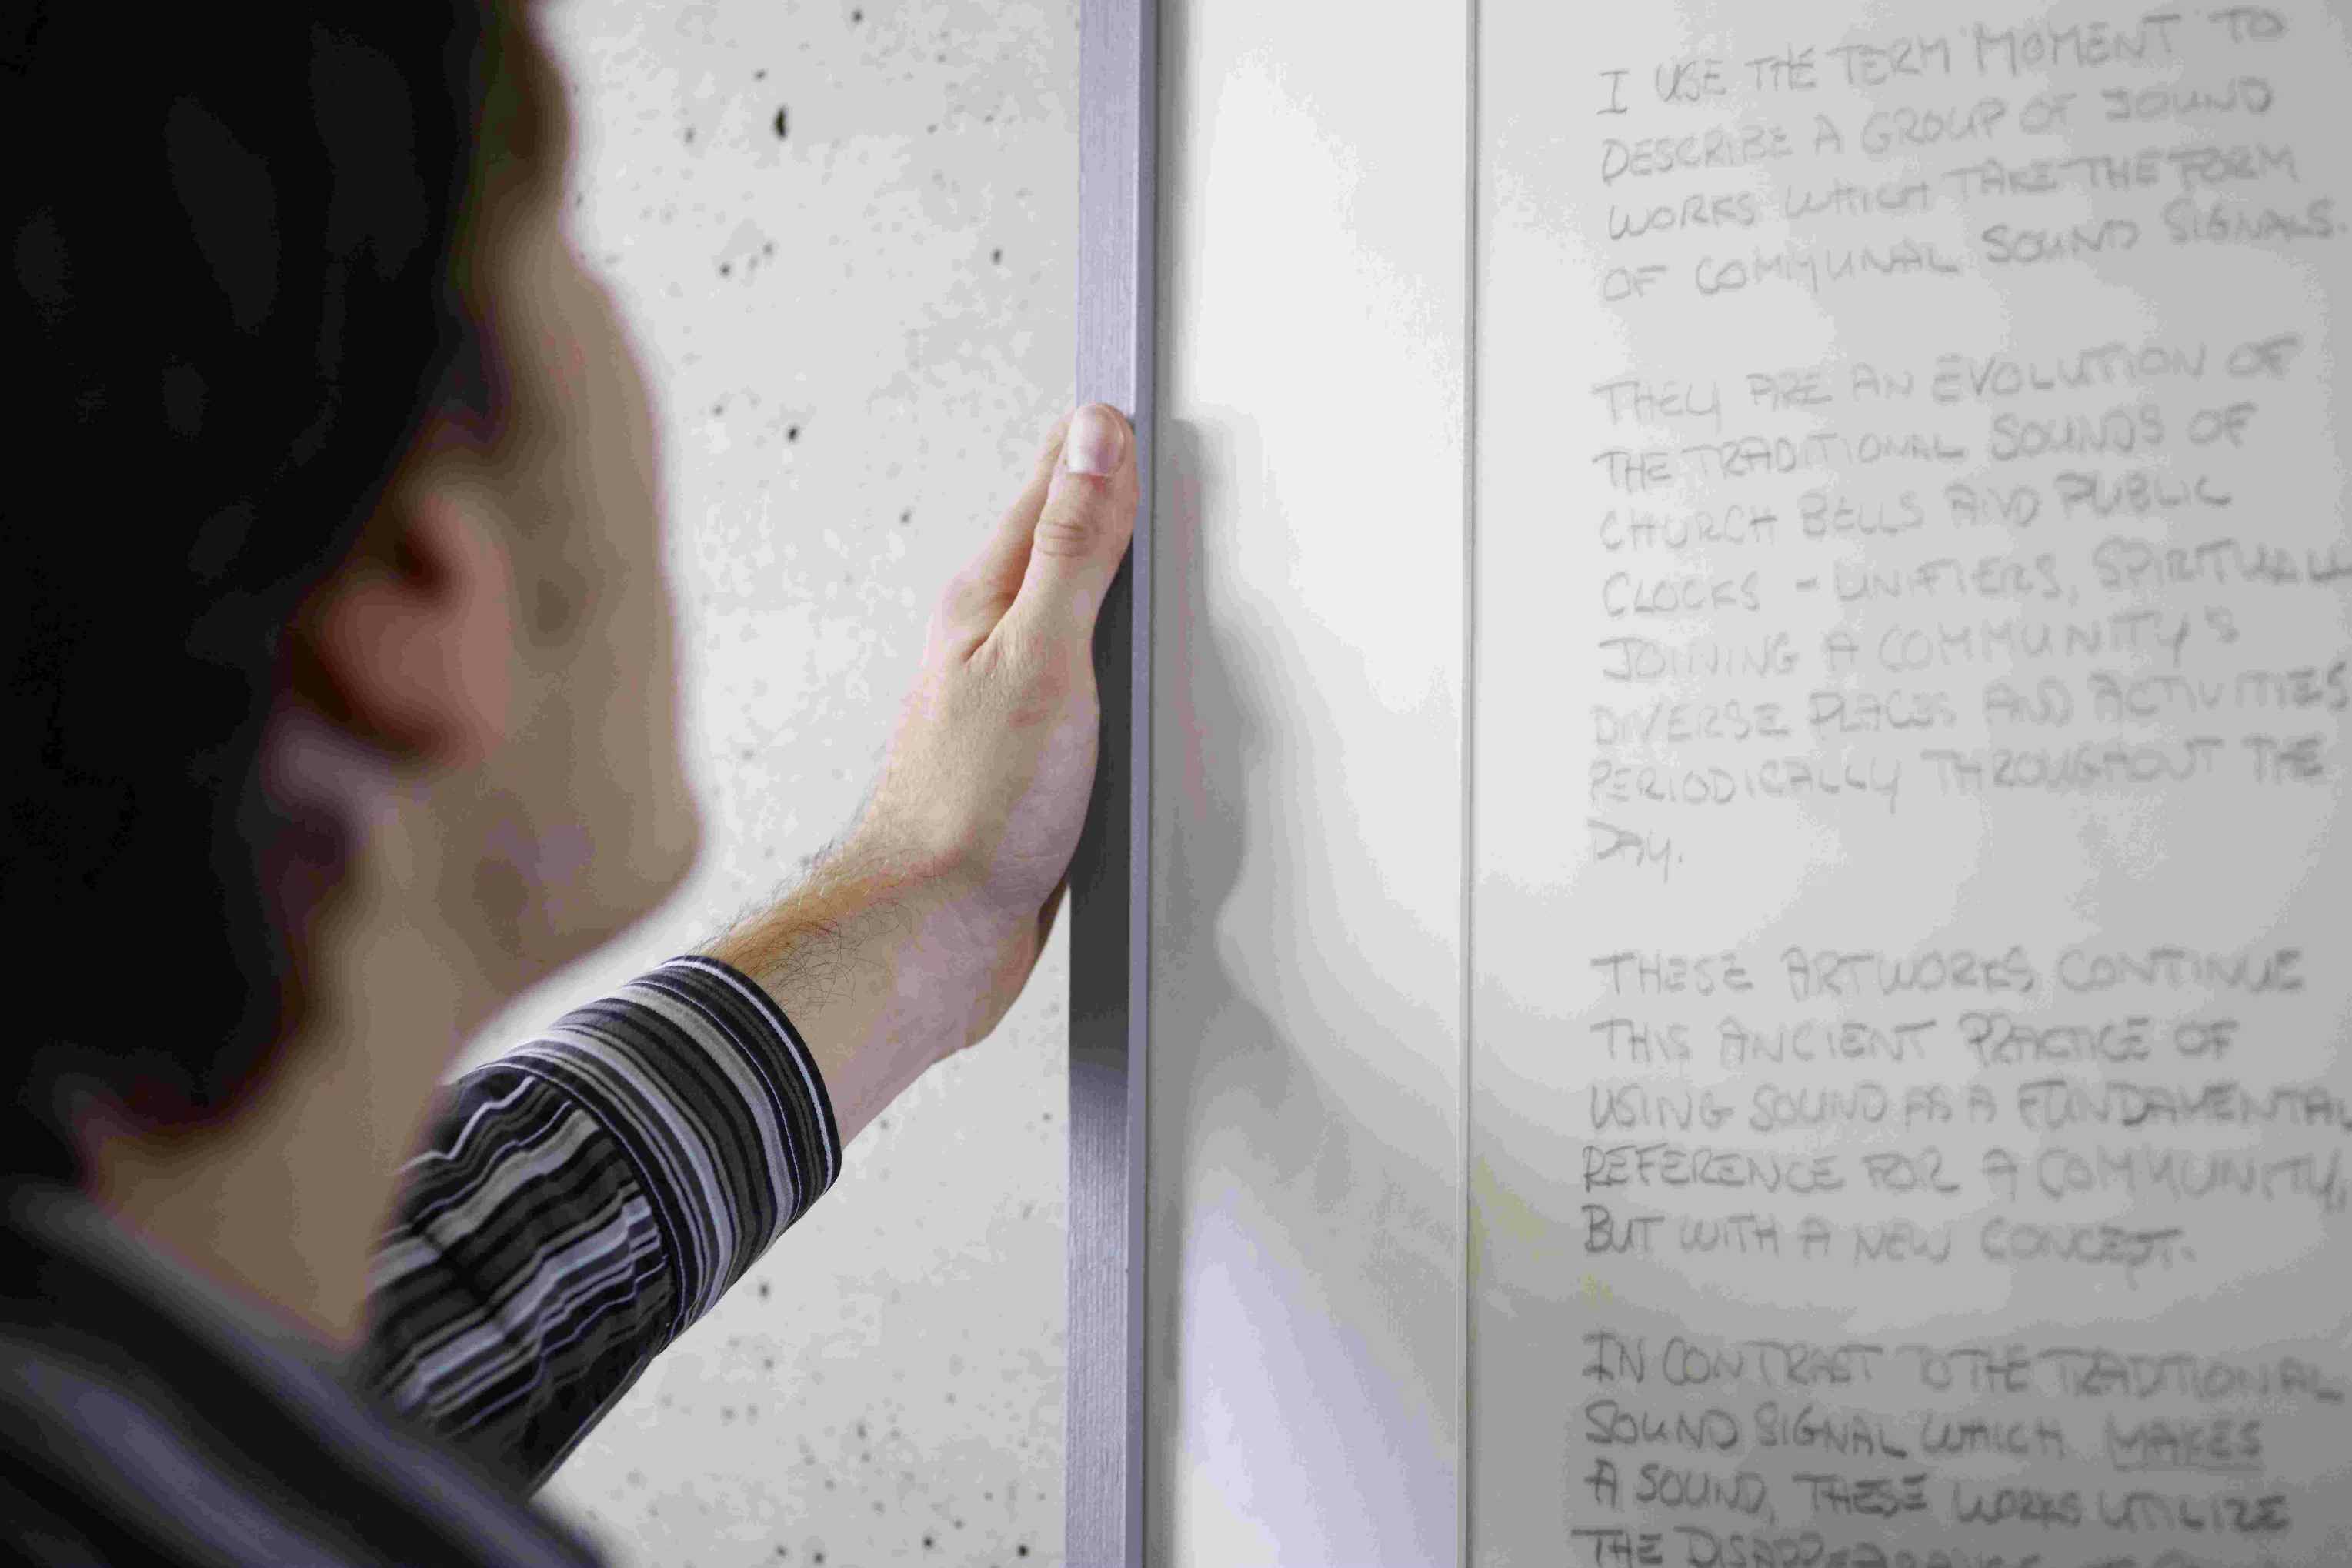 I USE THE TERM 'MOMENT' TO
DESCRIBE A GROUP OF SOUND
WORKS WHICH TAKE THE FORM
OF COMMUNAL SOUND SIGNALS.
THEY ARE AN EVOLUTION OF
THE TRADITIONAL SOUNDS OF
CHURCH BELLS AND PUBLIC
CLOCKS - UNIFIERS, SPIRITUALLY
JOINING A COMMUNITY'S
DIVERSE PLACES AND ACTIVITIES
PERIODICALLY THROUGHOUT THE
DAY.
THESE ARTWORKS CONTINUE
THIS ANCIENT PRACTICE OF
USING SOUND AS A FUNDAMENTAL
REFERENCE FOR A COMMUNITY,
BUT WITH A NEW CONCEPT.
IN CONTRAST TO THE TRADTIONAL
SOUND SIGNAL WHICH MAKES
A SOUND, THESE WORKS UTILIZE
THE DISAPPEARANCE